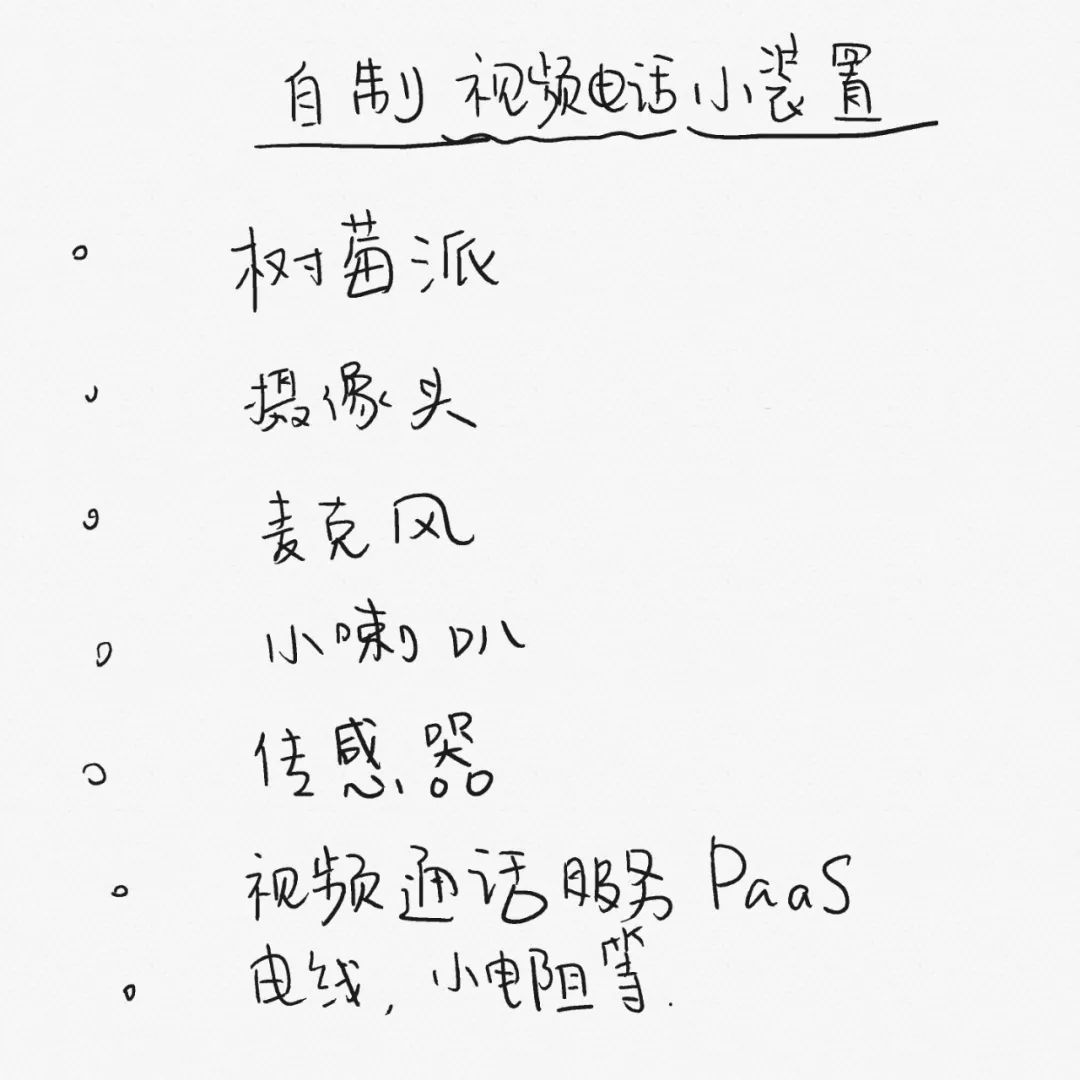 自制视频电话小装置
树莓派
摄像头
麦克风
小喇叭
传感器
视频通话服务 PaaS
电线，小电阻等.